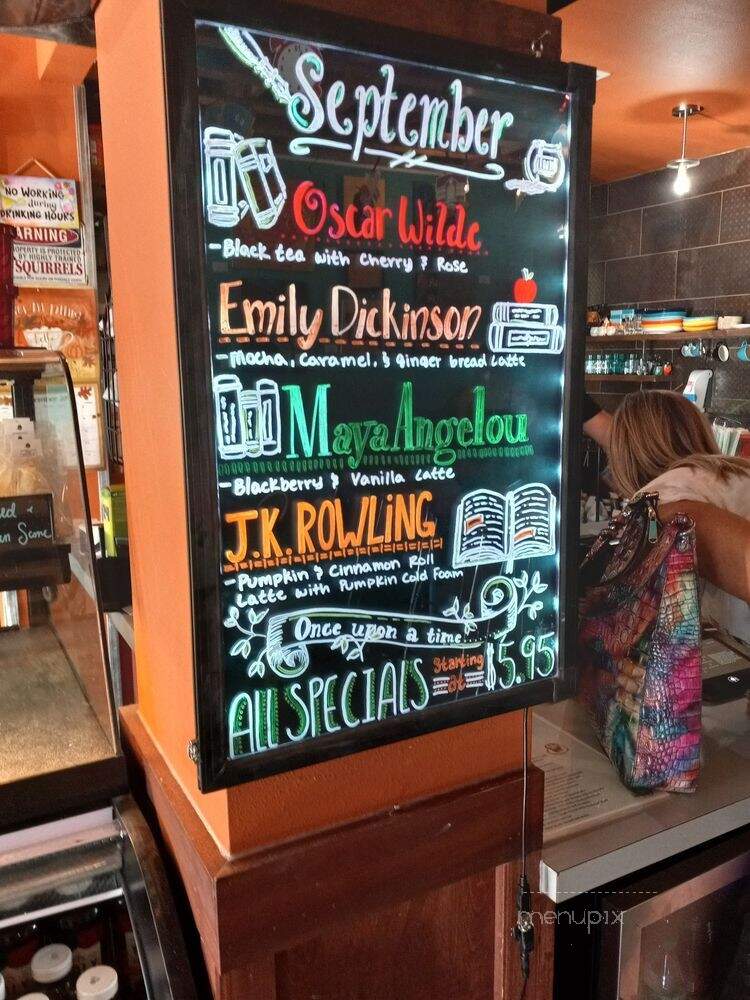 September
Oscar Wilde
-Black tea with Cherry & Rose
Emily Dickinson
-Mocha, Caramel, & ginger bread Latte
Maya Angelou
-Blackberry & Vanilla Latte
J.K. ROWLiNG
-Pumpkin & Cinnamon Roll
Latte with Pumpkin Cold Foam
Once upon a time
All SPECIAlS Starting at $5.95
NO WORKING
during
DRINKING HOURS
WARNING
PROPERTY IS PROTECTED
BY HIGHLY TRAINED
SQUIRRELS
menupix